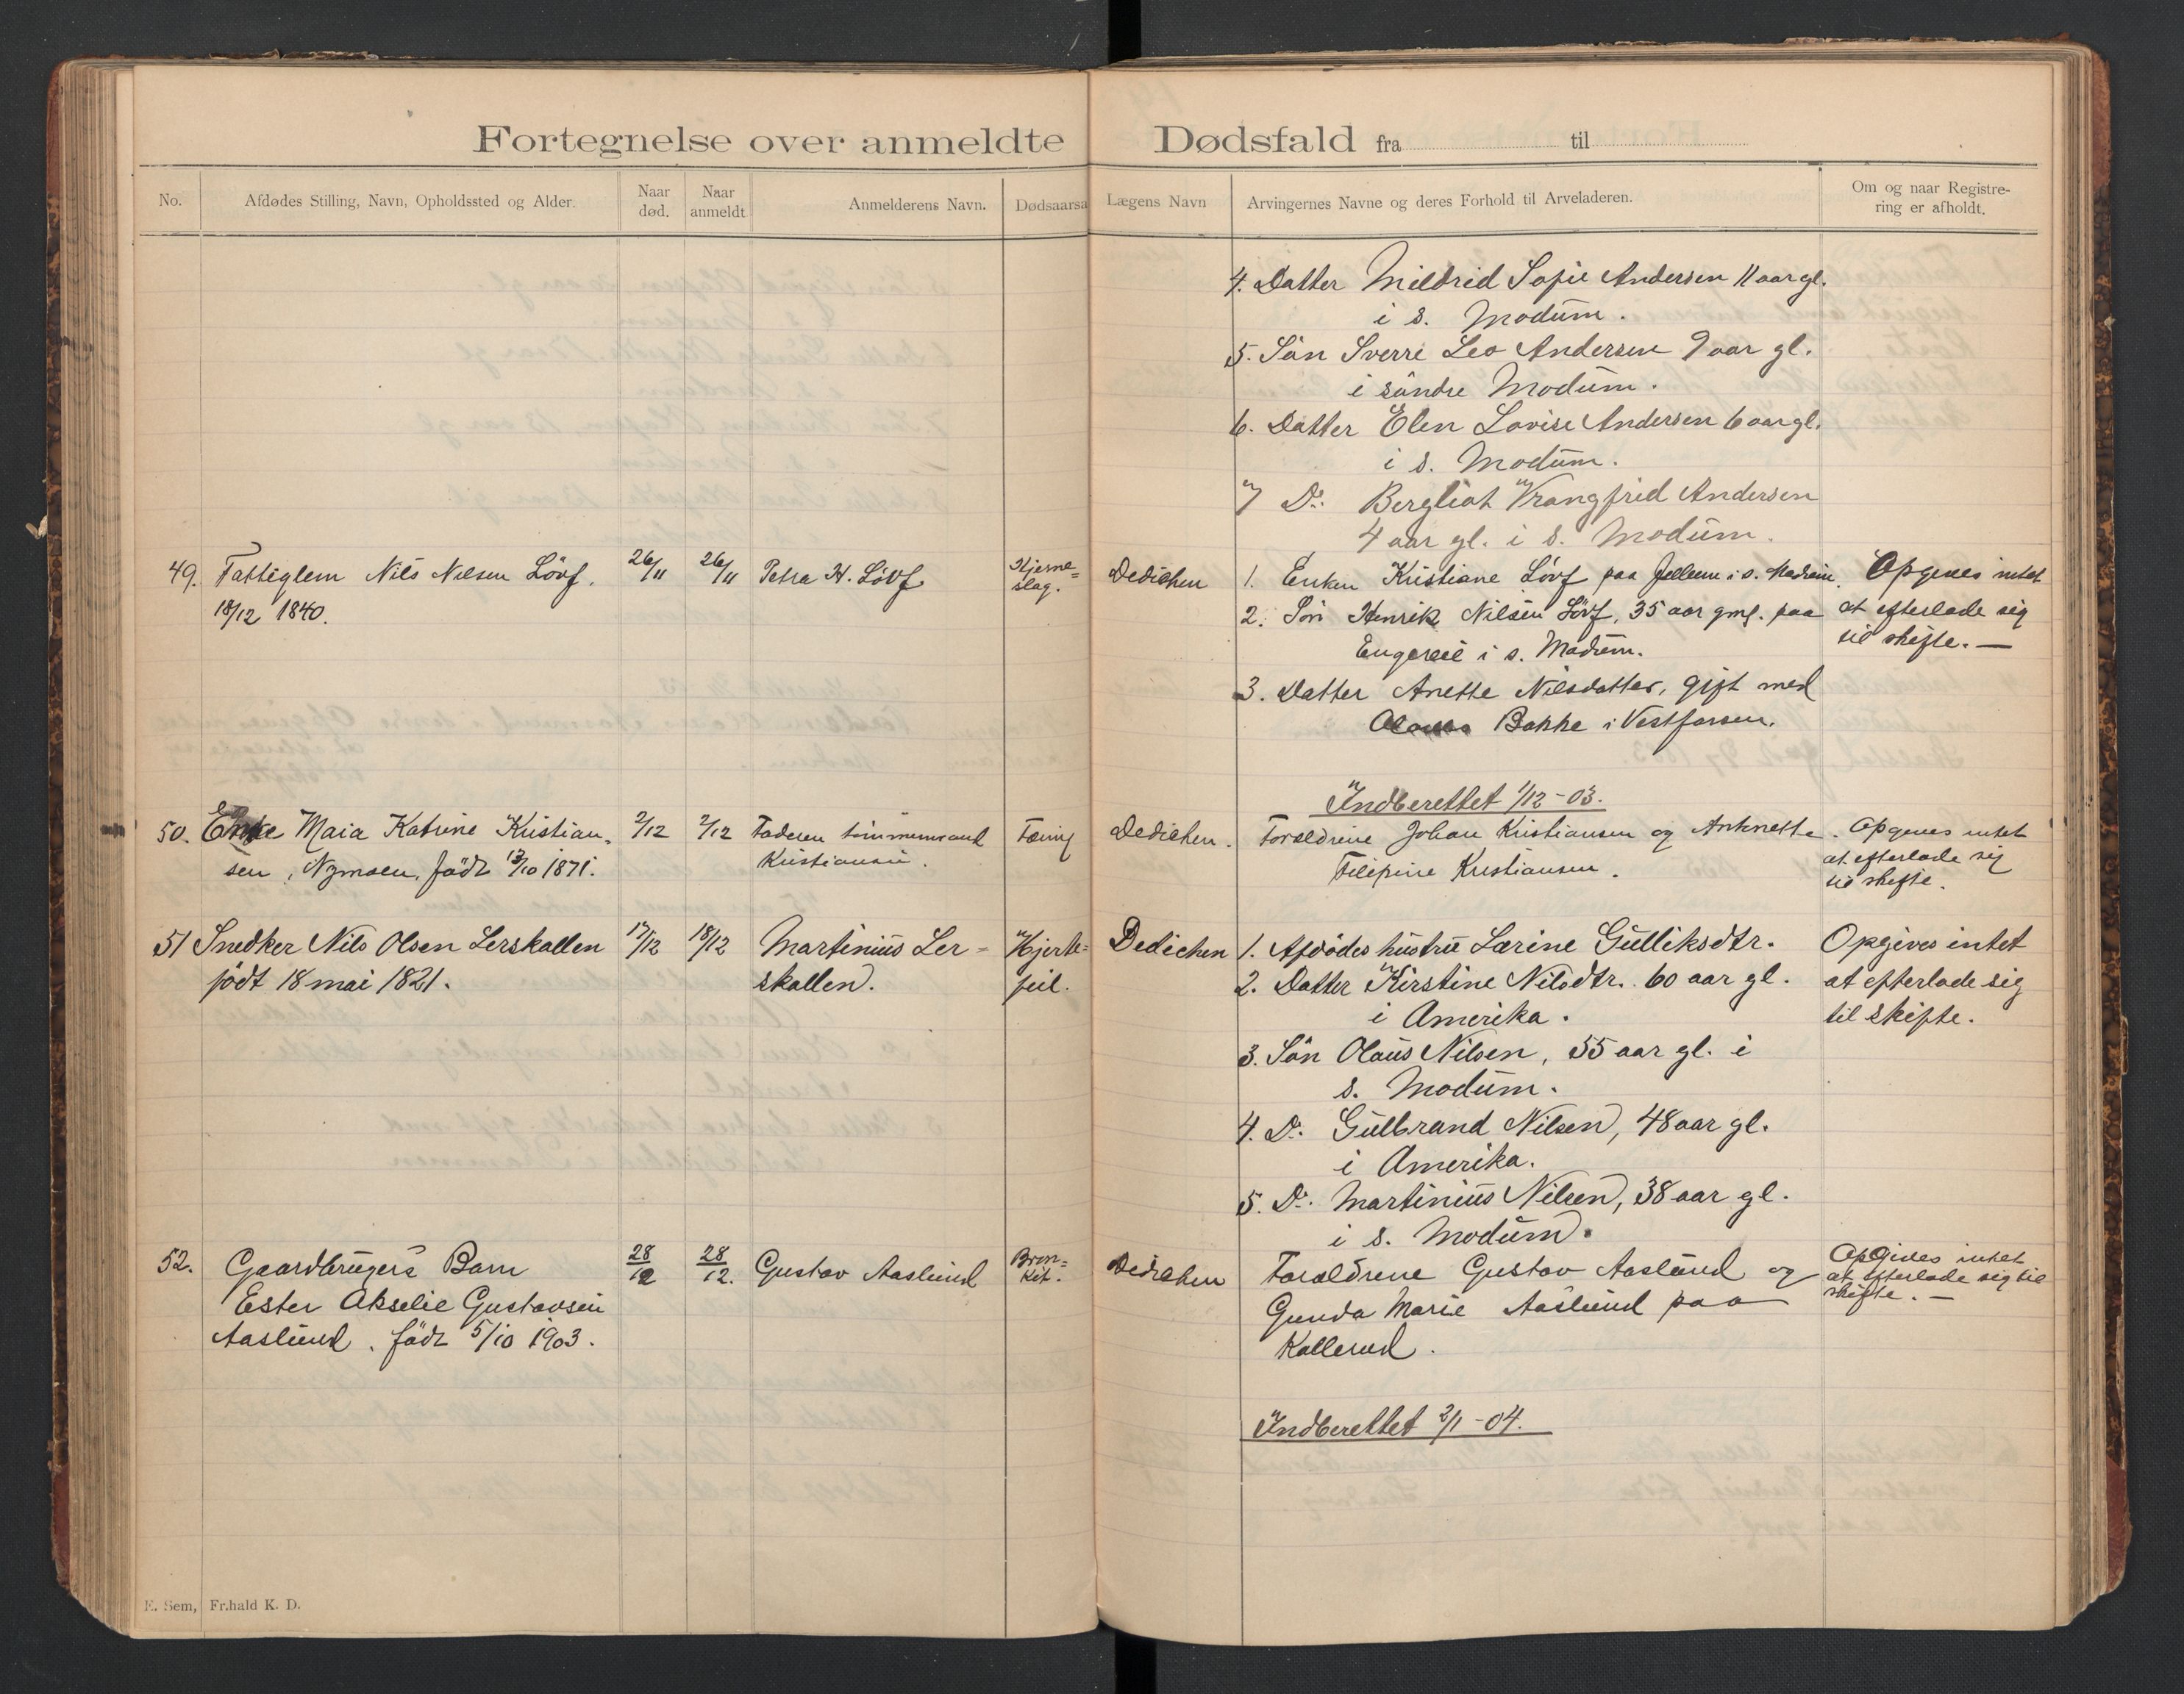 Fortegnelse over anmeldte Dødsfald fra til
No. Afdødes Stilling, Navn, Opholdssted og Alder. Naar død. Naar anmeldt Anmelderens Navn. Dødsaarsa Lægens Navn Arvingernes Navne og deres Forhold til Arveladeren. Om og naar Registre-
ring er afholdt.
4. Datter Mildrid Sofie Andersen 11 aar gl.
i s. Modum.
5. Sön Sverre Leo Andersen 9 aar gl.
i söndre Modum.
6. Datter Elen Lovise Andersen 6 aar gl.
i s. Modum.
7 Do. Bergliot Vrangfrid Andersen
4 aar gl. i s. Modum.
49. Fattiglem Nils Nilsen Lövf. 26/11 26/11 Petra H. Lövf Hjerne=
slag. Dedichen 1. Enken Kristiane Lövf paa Jellum i s. Modum. Opgives intet
18/12 1840. 2. Sön Henrik Nilsen Lövf, 35 aar gml. paa at efterlade sig
i s. Modum. til skifte. —
3. Datter Anette Nilsdatter, gift med
Bakke i Vestfossen.
Indberettet 1/12-03.
50. Enke Maia Katrine Kristian= 2/12 2/12 Faderen tömmermand Tæring Dedichen. Foreldrene Johan Kristiansen og Antonette Opgives intet
sen, Nymoen, född 13/10 1871. Kristiansen. Filipine Kristiansen. at efterlade sig
til skifte.
51 Snedker Nils Olsen Lerskallen 17/12 18/12 Martinius Ler- Hjerte= Dedichen 1. Afdödes hustru Larine Gulliksdtr. Opgives intet
födt 18 mai 1821. skallen. feil. 2. Datter Kirstine Nilsdtr. 60 aar gl. at efterlade sig
i Amerika. til skifte.
3. Sön Olaus Nilsen, 55 aar gl. i
s. Modum.
4. Do. Gulbrand Nilsen, 48 aar gl.
i Amerika.
5. Do. Martinius Nilsen, 38 aar gl.
i s. Modum.
52. Gaardbrugers Barn 28/12 28/12. Gustav Aaslund Bron=
kit. Dedichen Foreldrene Gustav Aaslund og Opgives intet
Ester Akselie Gustavsen Gunda Marie Aaslund paa at efterlade sig til
Aaslund. född 5/10 1903. Kallerud. skifte. —
Indberettet 2/1-04.
E. Sem, Fr.hald K. D.